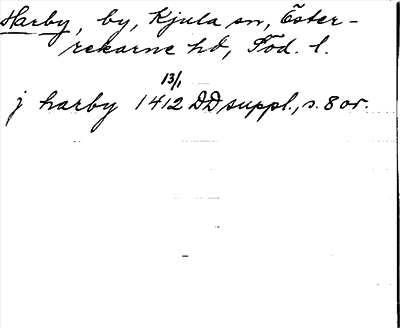 Harby, by, Kjula sn, Öster-
rekarne hd, Söd. l.
13/1
j harby 1412 DD suppl., s. 8 or.